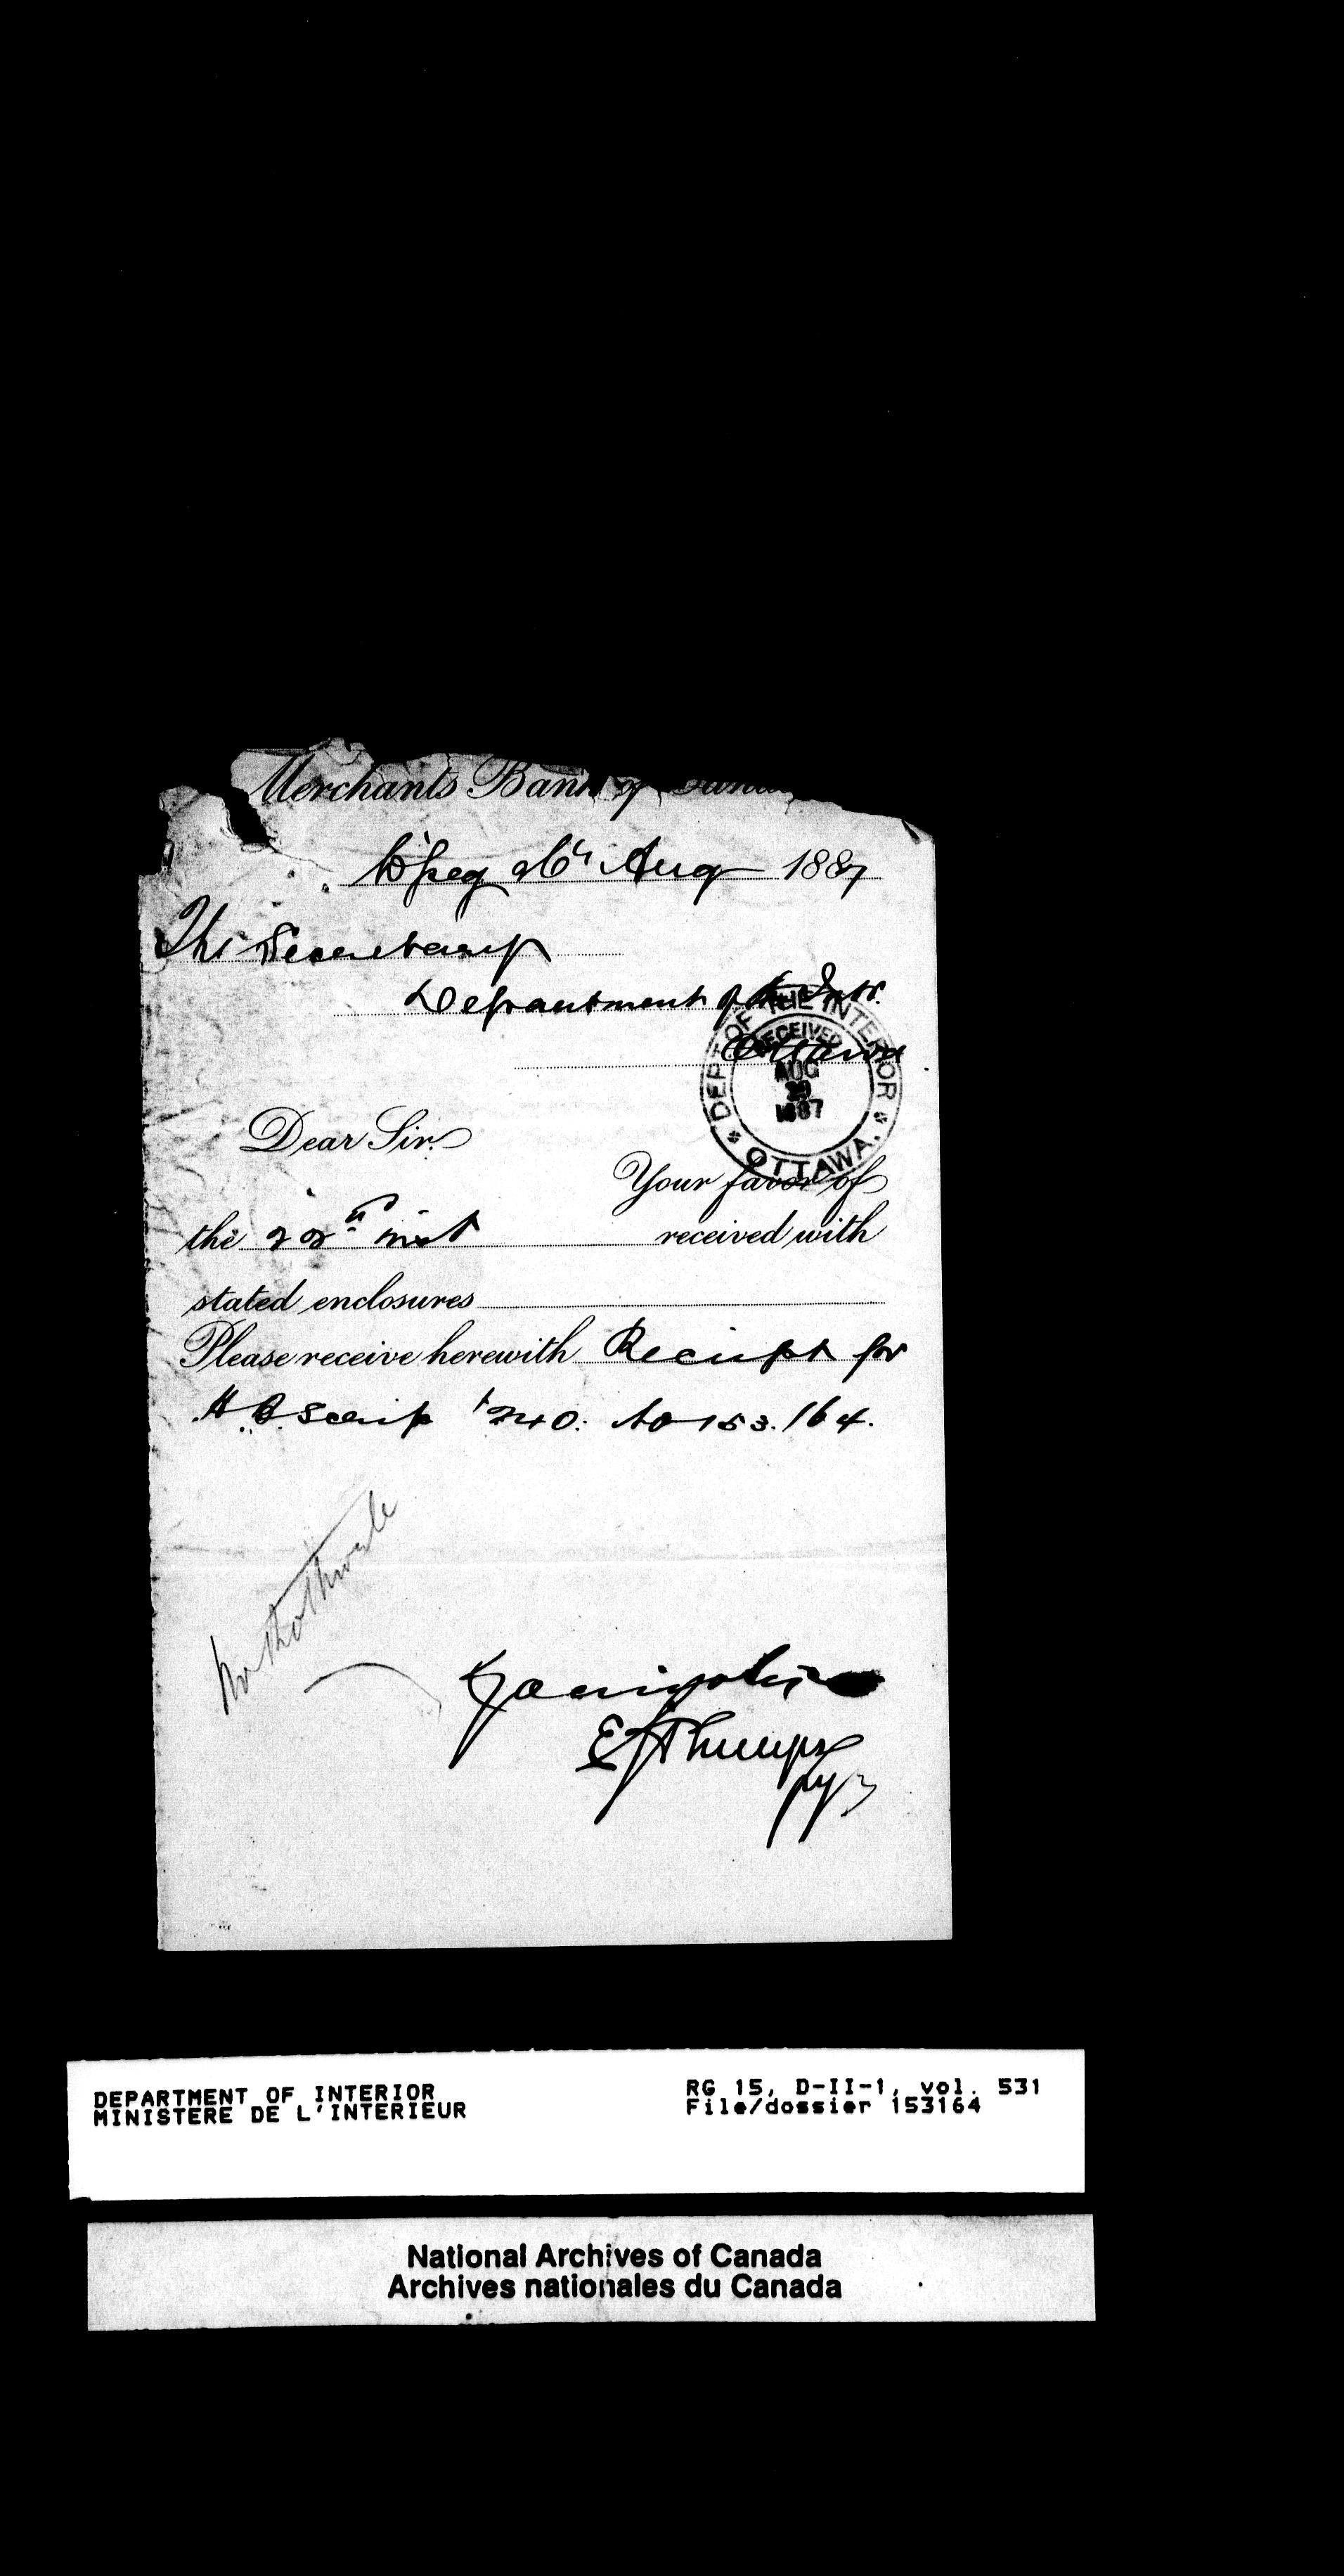 Merchants Bank of Canada
W'peg 26th Aug 1887
The Secretary
Department of the Intr.
Ottawa
DEPT OF THE INTERIOR
RECEIVED
AUG
29
1887
* OTTAWA. *
Dear Sir.
Your favor of
the 22nd inst received with
stated enclosures
Please receive herewith Receipt for
H.B. Scrip $240. No 153.164.
Yours truly
DEPARTMENT OF INTERIOR
MINISTERE DE L'INTERIEUR
RG 15, D-II-1, vol. 531
File/dossier 153164
National Archives of Canada
Archives nationales du Canada